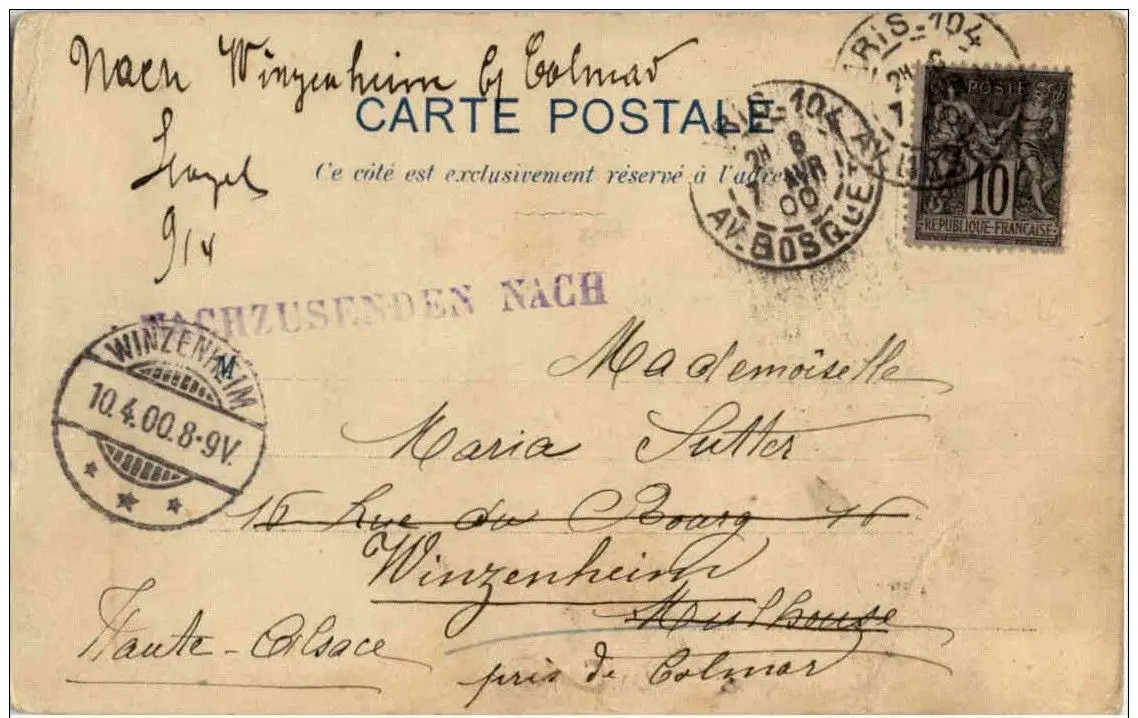 Nach Winzenheim b/ Colmar
CARTE POSTALE
Ce côté est exclusivement réservé à l'adresse
9/4
NACHZUSENDEN NACH
PARIS-104
2H 8
7 AVR
00
AV. BOSQUET
PARIS-104
2H
7
POSTES
10
REPUBLIQUE-FRANÇAISE
WINZENHEIM
10.4.00.8-9V.
M
Mademoiselle
Maria Sutter
16 Rue du Bourg 16
Winzenheim
Mulhouse
Haute-Alsace
près de Colmar